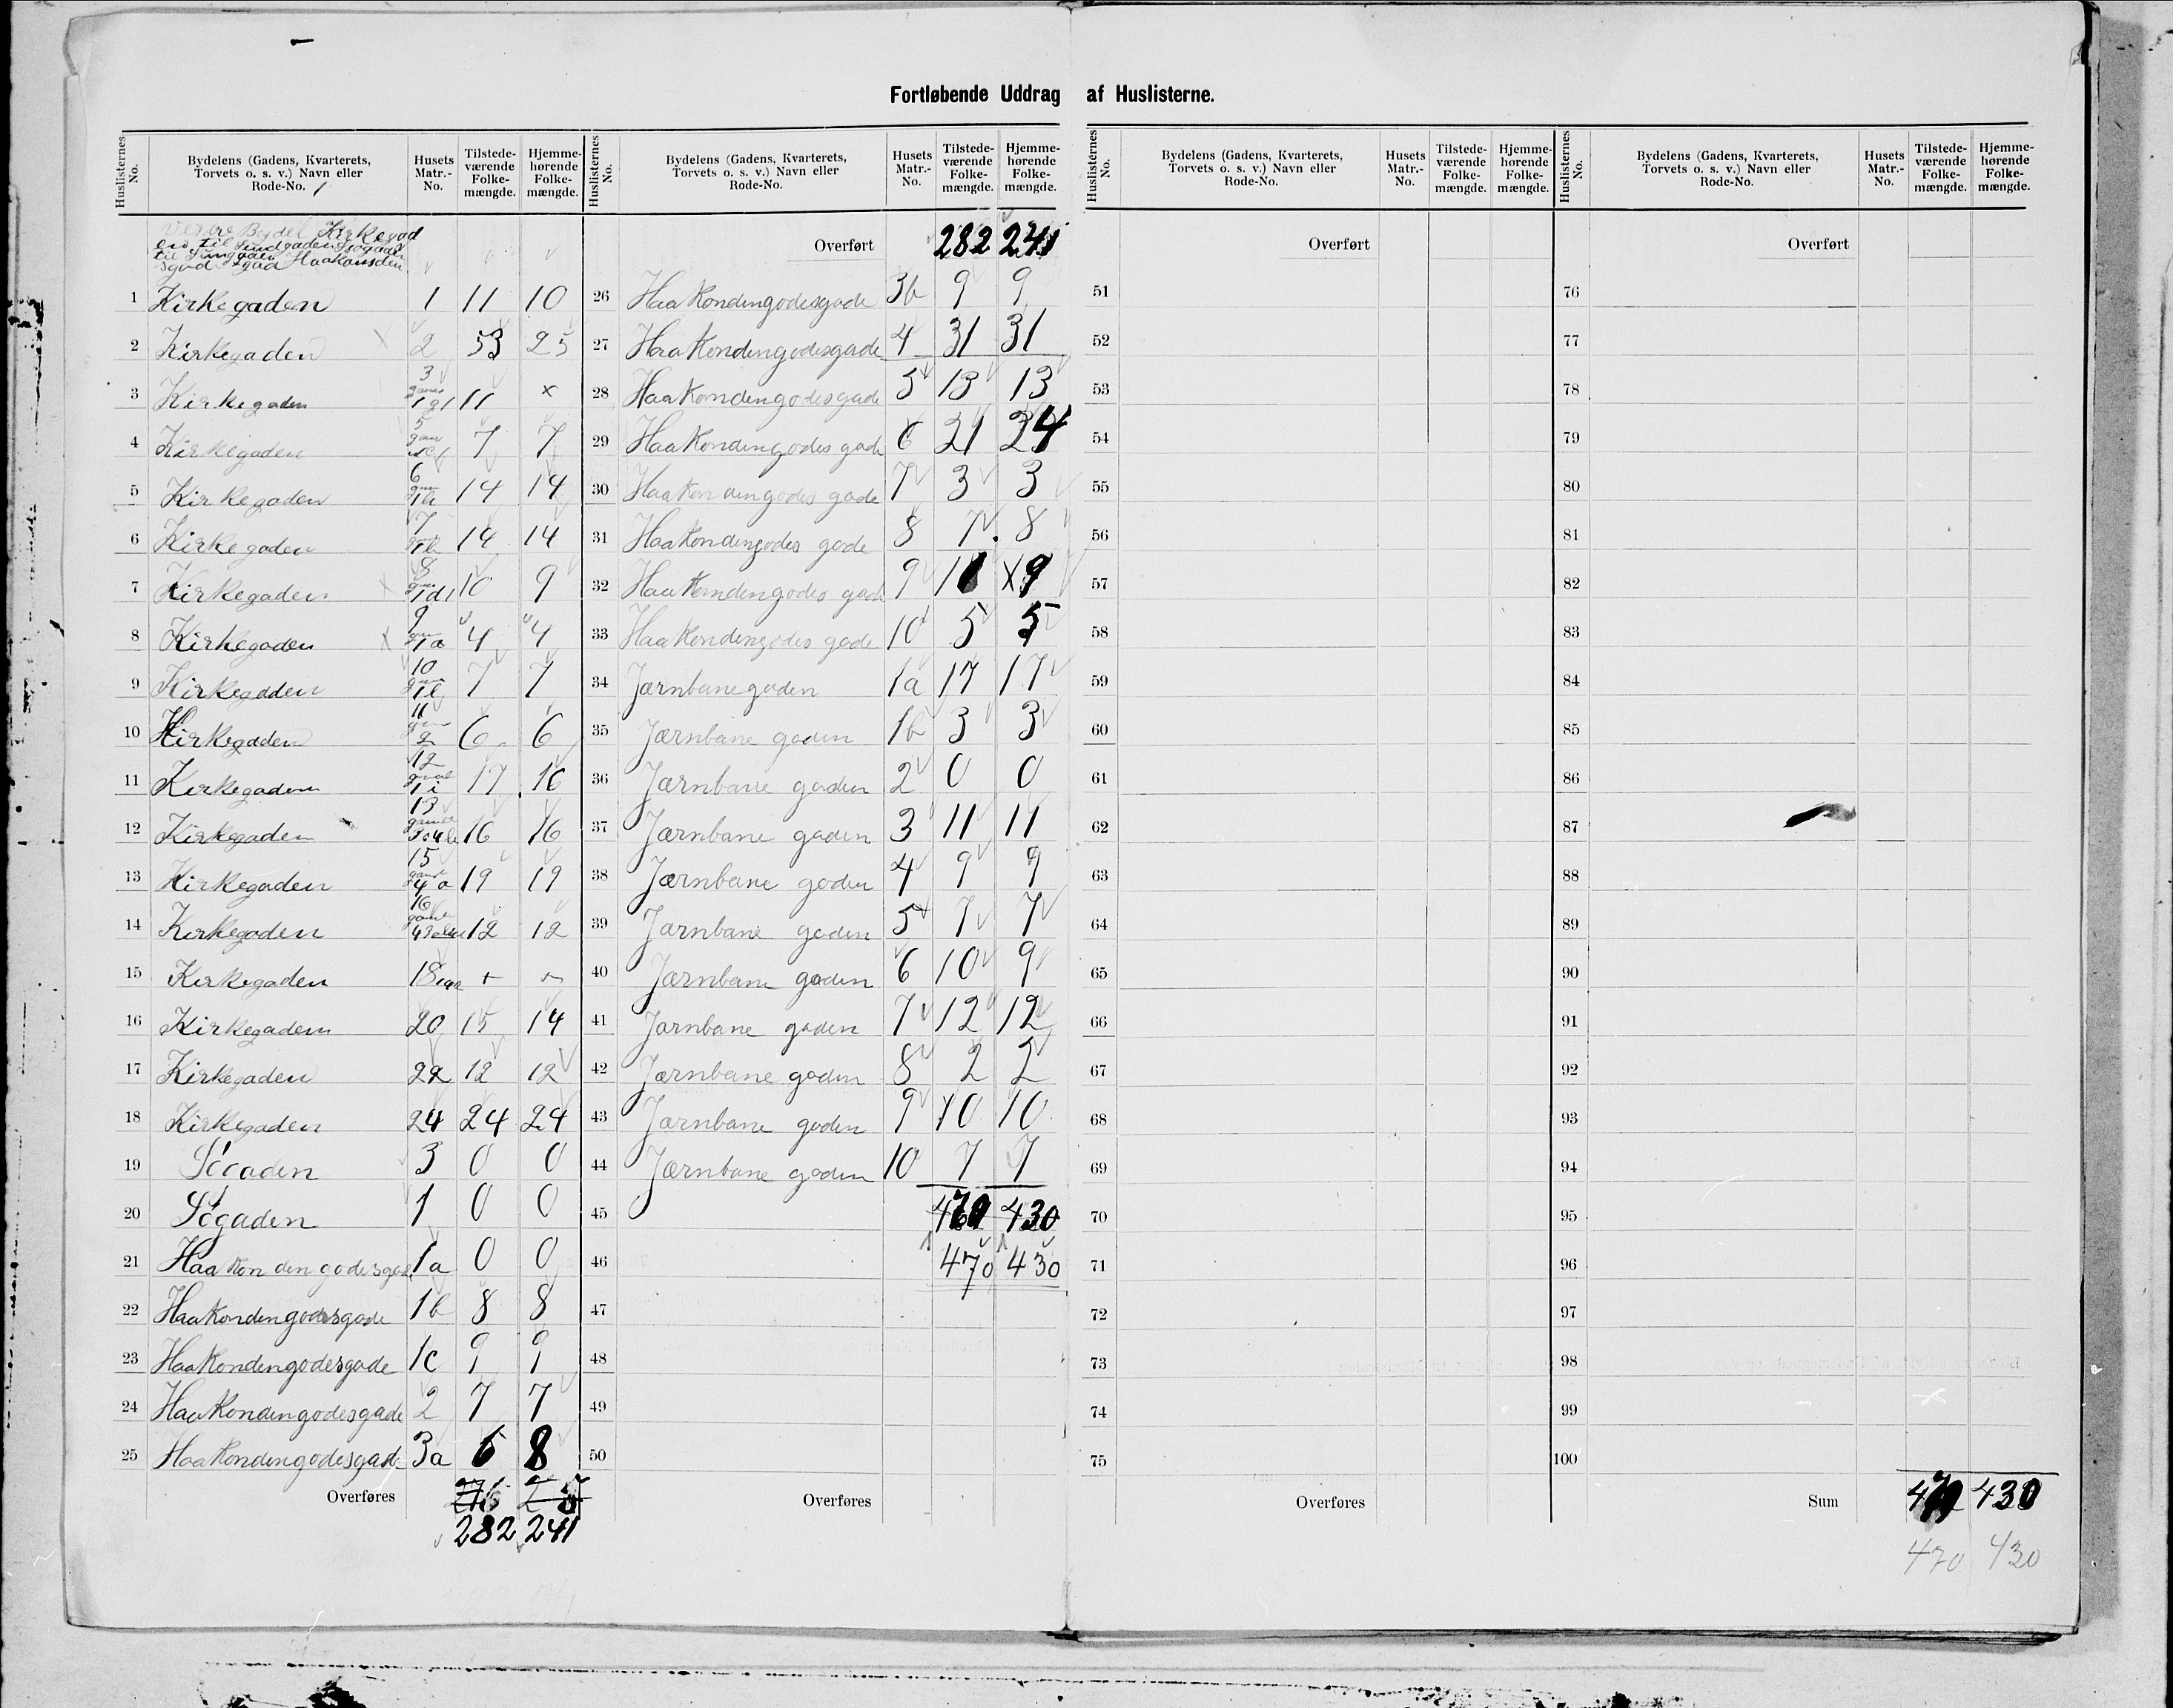 Fortløbende Uddrag af Huslisterne.
Huslisternes No. Bydelens (Gadens, Kvarterets, Torvets o. s. v.) Navn eller Rode-No. 1 Husets Matr.-No. Tilstede-værende Folke-mængde. Hjemme-hørende Folke-mængde.
Bydel Kirkegad
en til
til
1 Kirkegaden 1 11 10
2 Kirkegaden 2 53 25
3 Kirkegaden 3 11 x
4 Kirkegaden 5 7 7
5 Kirkegaden 6 14 14
6 Kirkegaden 7 14 14
7 Kirkegaden 8 10 9
8 Kirkegaden 9 4 4
9 Kirkegaden 10 7 7
10 Kirkegaden 11 6 6
11 Kirkegaden 12 17 16
12 Kirkegaden 13 16 16
13 Kirkegaden 15 19 19
14 Kirkegaden 16 12 12
15 Kirkegaden 18
16 Kirkegaden 20 15 14
17 Kirkegaden 22 12 12
18 Kirkegaden 24 24 24
19 Søgaden 3 0 0
20 Søgaden 1 0 0
21 Haakon den godesgad 1a 0 0
22 Haakondengodesgade 1b 8 8
23 Haakondengodesgade 1c 9 9
24 Haakondengodesgade 2 7 7
25 Haakondengodesgad 3a 6 8
Overføres 276
282 241
Huslisternes No. Bydelens (Gadens, Kvarterets, Torvets o. s. v.) Navn eller Rode-No. Husets Matr.-No. Tilstede-værende Folke-mængde. Hjemme-hørende Folke-mængde.
Overført 282 241
26 Haakondengodesgade 3b 9 9
27 Haakondengodesgade 4 31 31
28 Haakondengodesgade 5 13 13
29 Haakondengodes gade 6 21 24
30 Haakondengodes gade 7 3 3
31 Haakondengodes gade 8 7 8
32 Haakondengodes gade 9 9
33 Haakondengodes gade 10 5 5
34 Jærnbanegaden 1a 17 17
35 Jærnbane gaden 1b 3 3
36 Jærnbane gaden 2 0 0
37 Jærnbane gaden 3 11 11
38 Jærnbane gaden 4 9 9
39 Jærnbane gaden 5 7 7
40 Jærnbane gaden 6 10 9
41 Jærnbane gaden 7 12 12
42 Jærnbane gaden 8 2 2
43 Jærnbane gaden 9 10 10
44 Jærnbane gaden 10 7 7
45 430
46 470 430
47
48
49
50
Overføres
Huslisternes No. Bydelens (Gadens, Kvarterets, Torvets o. s. v.) Navn eller Rode-No. Husets Matr.-No. Tilstede-værende Folke-mængde. Hjemme-hørende Folke-mængde.
Overført
51
52
53
54
55
56
57
58
59
60
61
62
63
64
65
66
67
68
69
70
71
72
73
74
75
Overføres
Huslisternes No. Bydelens (Gadens, Kvarterets, Torvets o. s. v.) Navn eller Rode-No. Husets Matr.-No. Tilstede-værende Folke-mængde. Hjemme-hørende Folke-mængde.
Overført
76
77
78
79
80
81
82
83
84
85
86
87
88
89
90
91
92
93
94
95
96
97
98
99
100
Sum 430
470 430